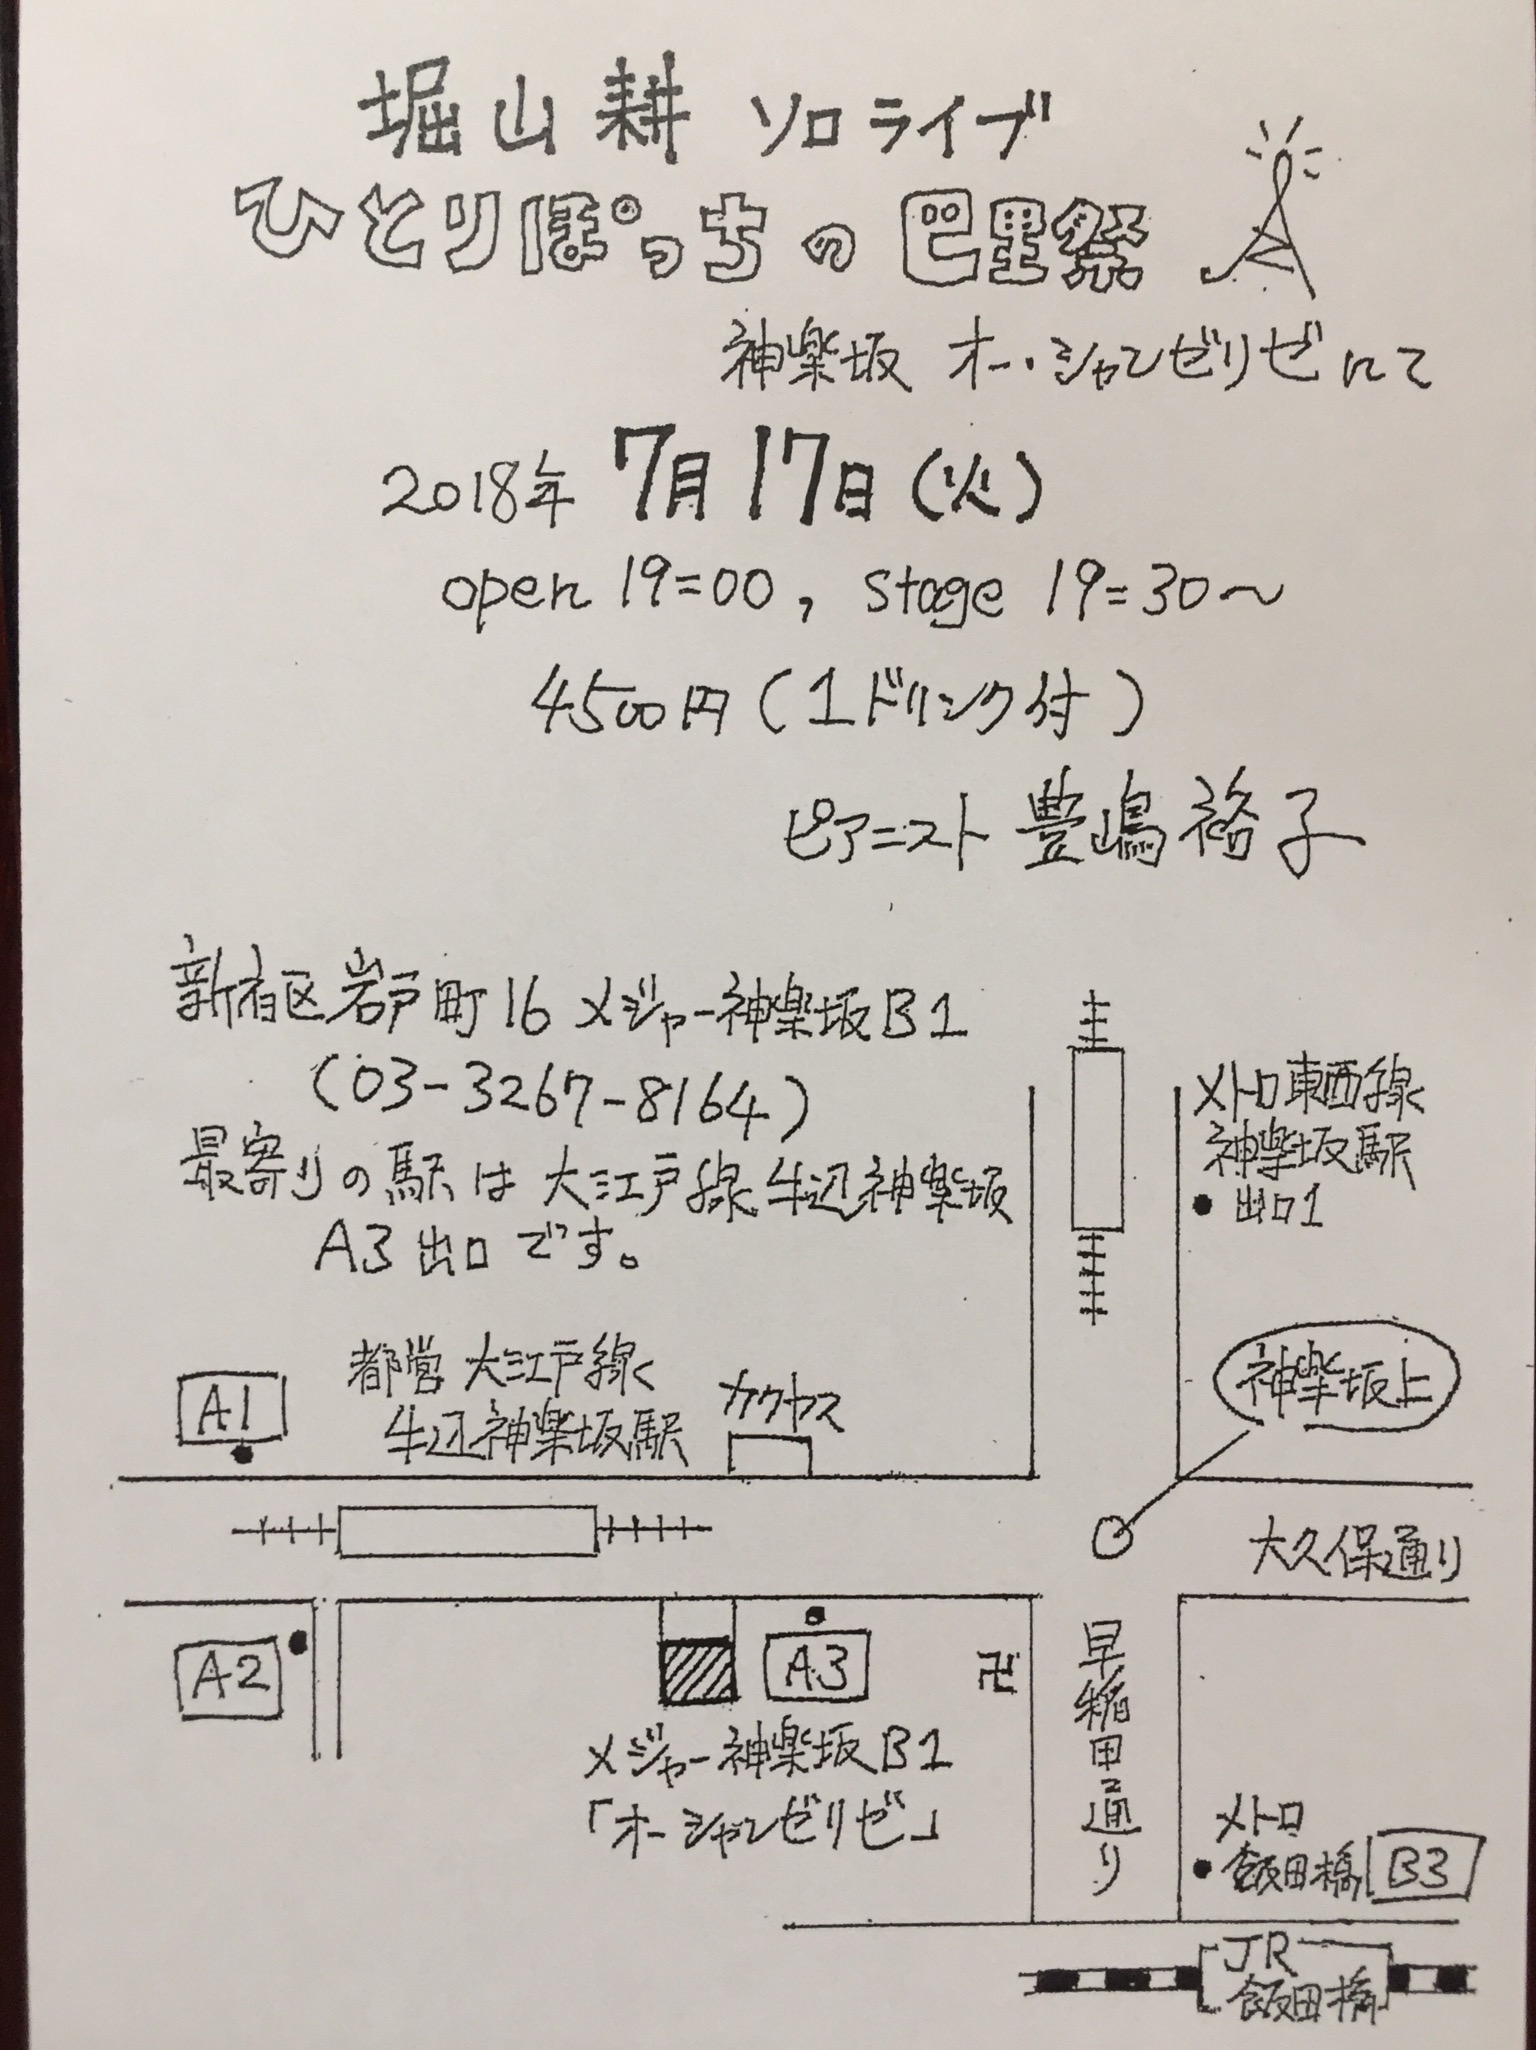 堀山耕 ソロライブ
ひとりぼっちの巴里祭
神楽坂 オー・シャンゼリゼにて
2018年 7月17日(火)
open 19=00, stage 19=30〜
4500円(1ドリンク付)
ピアニスト 豊嶋裕子
新宿区岩戸町16 メジャー神楽坂B1
(03-3267-8164)
最寄りの駅は大江戸線牛込神楽坂
A3出口です。
メトロ東西線
神楽坂駅
出口1
神楽坂上
都営大江戸線
牛込神楽坂駅
A1
カクヤス
大久保通り
A2
A3
卍
早稲田通り
メジャー神楽坂B1
「オーシャンゼリゼ」
メトロ
飯田橋 B3
JR
飯田橋